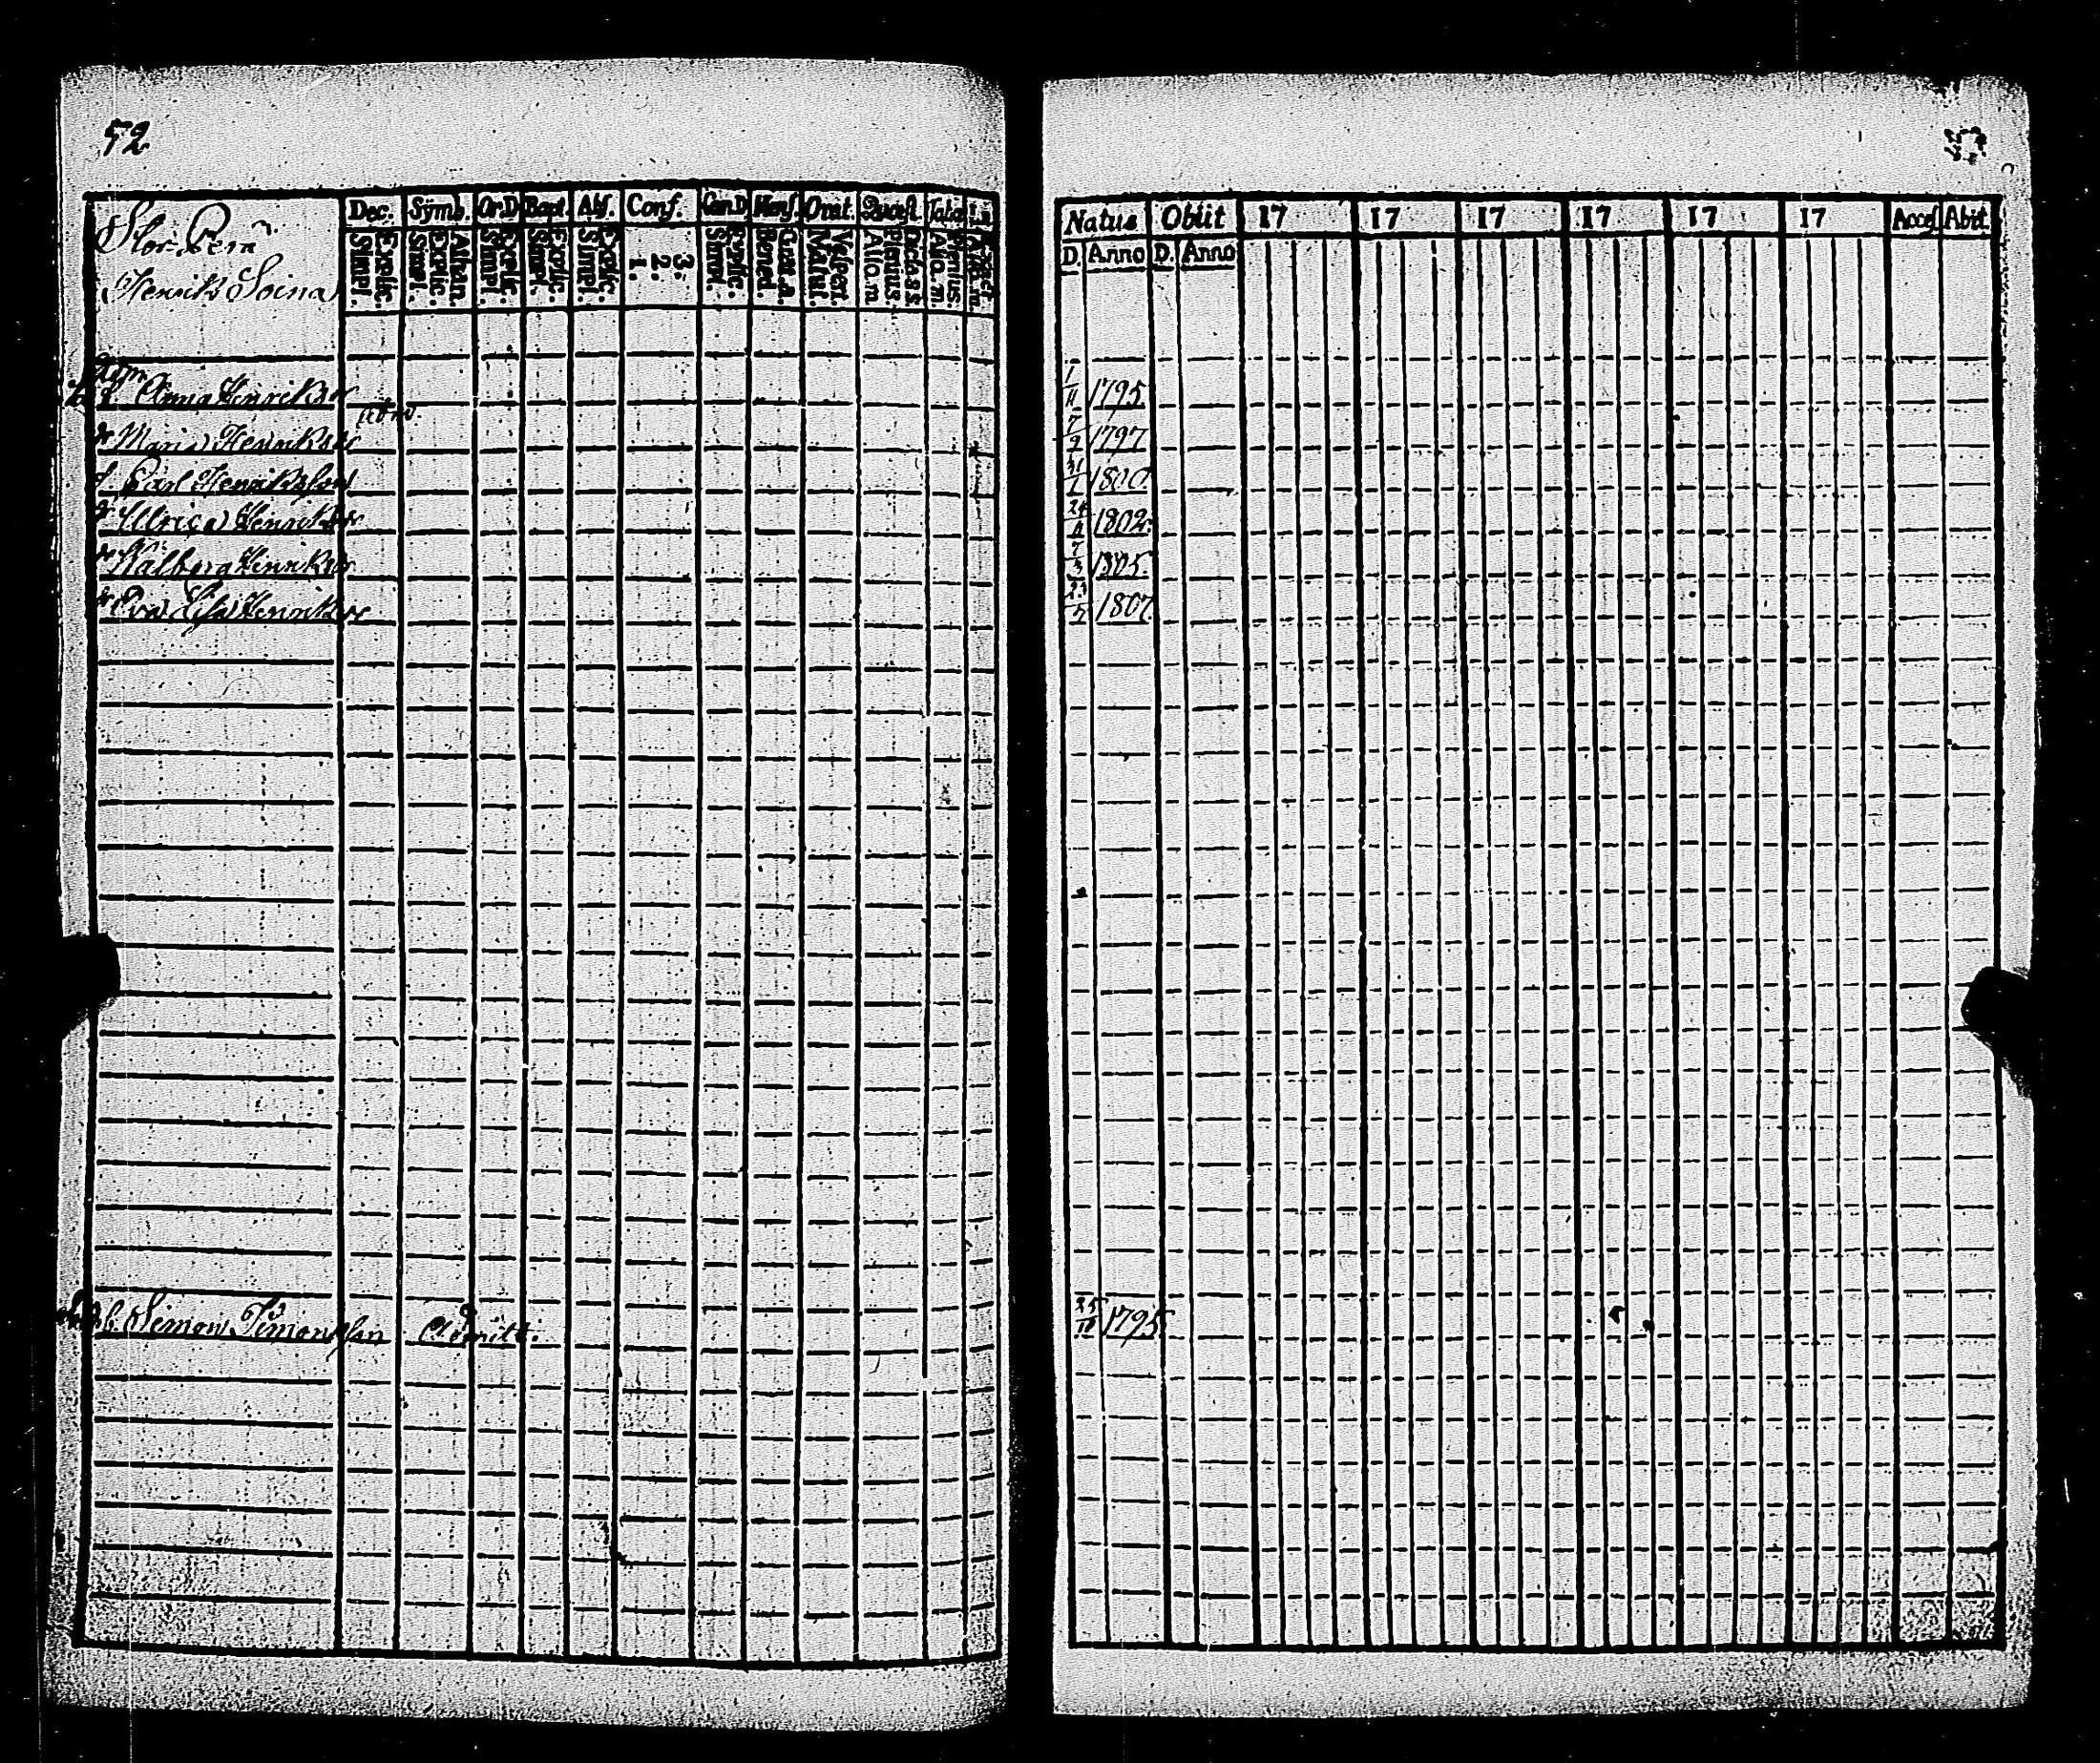 52
Stor-Pem
Henrik Soina
Dec. Symb. Or.D Bapt. Abs. Conf. Cœn.D Mens. Orat. Quæst. Tabo
Explic. Simpl. Athan. Explic. Simpl. Explic. Simpl. Explic. Simpl. Explic. Simpl. 3. 2. 1. Explic. Simpl. Grat. a. Bened. Vesper. Matut. Dicta s.s. Plenius. Aliq. m. Plenius. Aliq. m. Exact. Aliq. m.
d. Anna Henriksdr
dr Maria Henriksdr
s. Carl Henriksson
dr Ulrica Henriksdr
dr Walborg Henriksdr
dr Eva Lisa Henriksdr
Simon Simonsson
Natus Obiit 17 17 17 17 17 17 Access Abit.
D. Anno D. Anno
1/11 1795
7/9 1797
31/1 1800
24/11 1802
7/3 1805.
23/7 1807.
25/10 1795